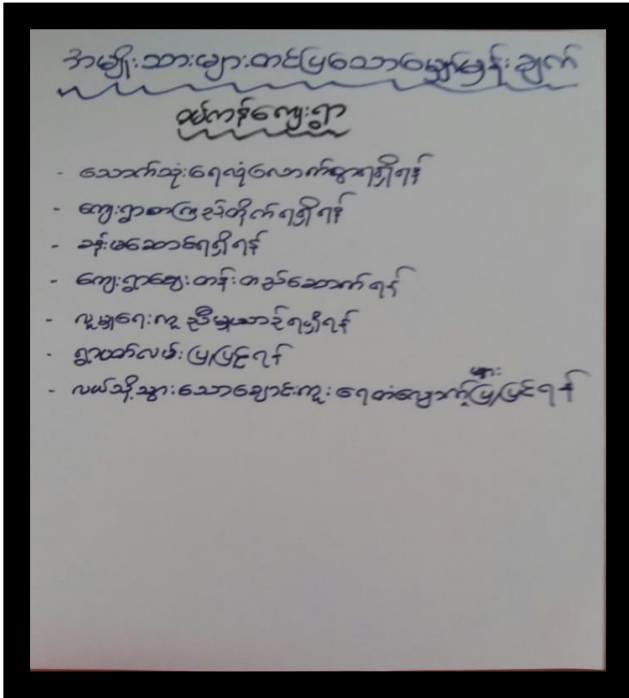 အမျိုးသားများတင်ပြသောမျှော်မှန်းချက်
ဝမ်ကန်ကျေးရွာ
- သောက်သုံးရေလုံလောက်စွာရရှိရန်
- ကျေးရွာစာကြည့်တိုက်ရရှိရန်
- ခန်းမဆောင်ရရှိရန်
- ကျေးရွာဈေးတန်းတည်ဆောက်ရန်
- လူမှုရေးကူညီမှုယာဉ်ရရှိရန်
- ရွာပတ်လမ်းပြုပြင်ရန်
- လယ်သို့သွားသောချောင်းကူးရေတံလျှောက်များပြုပြင်ရန်